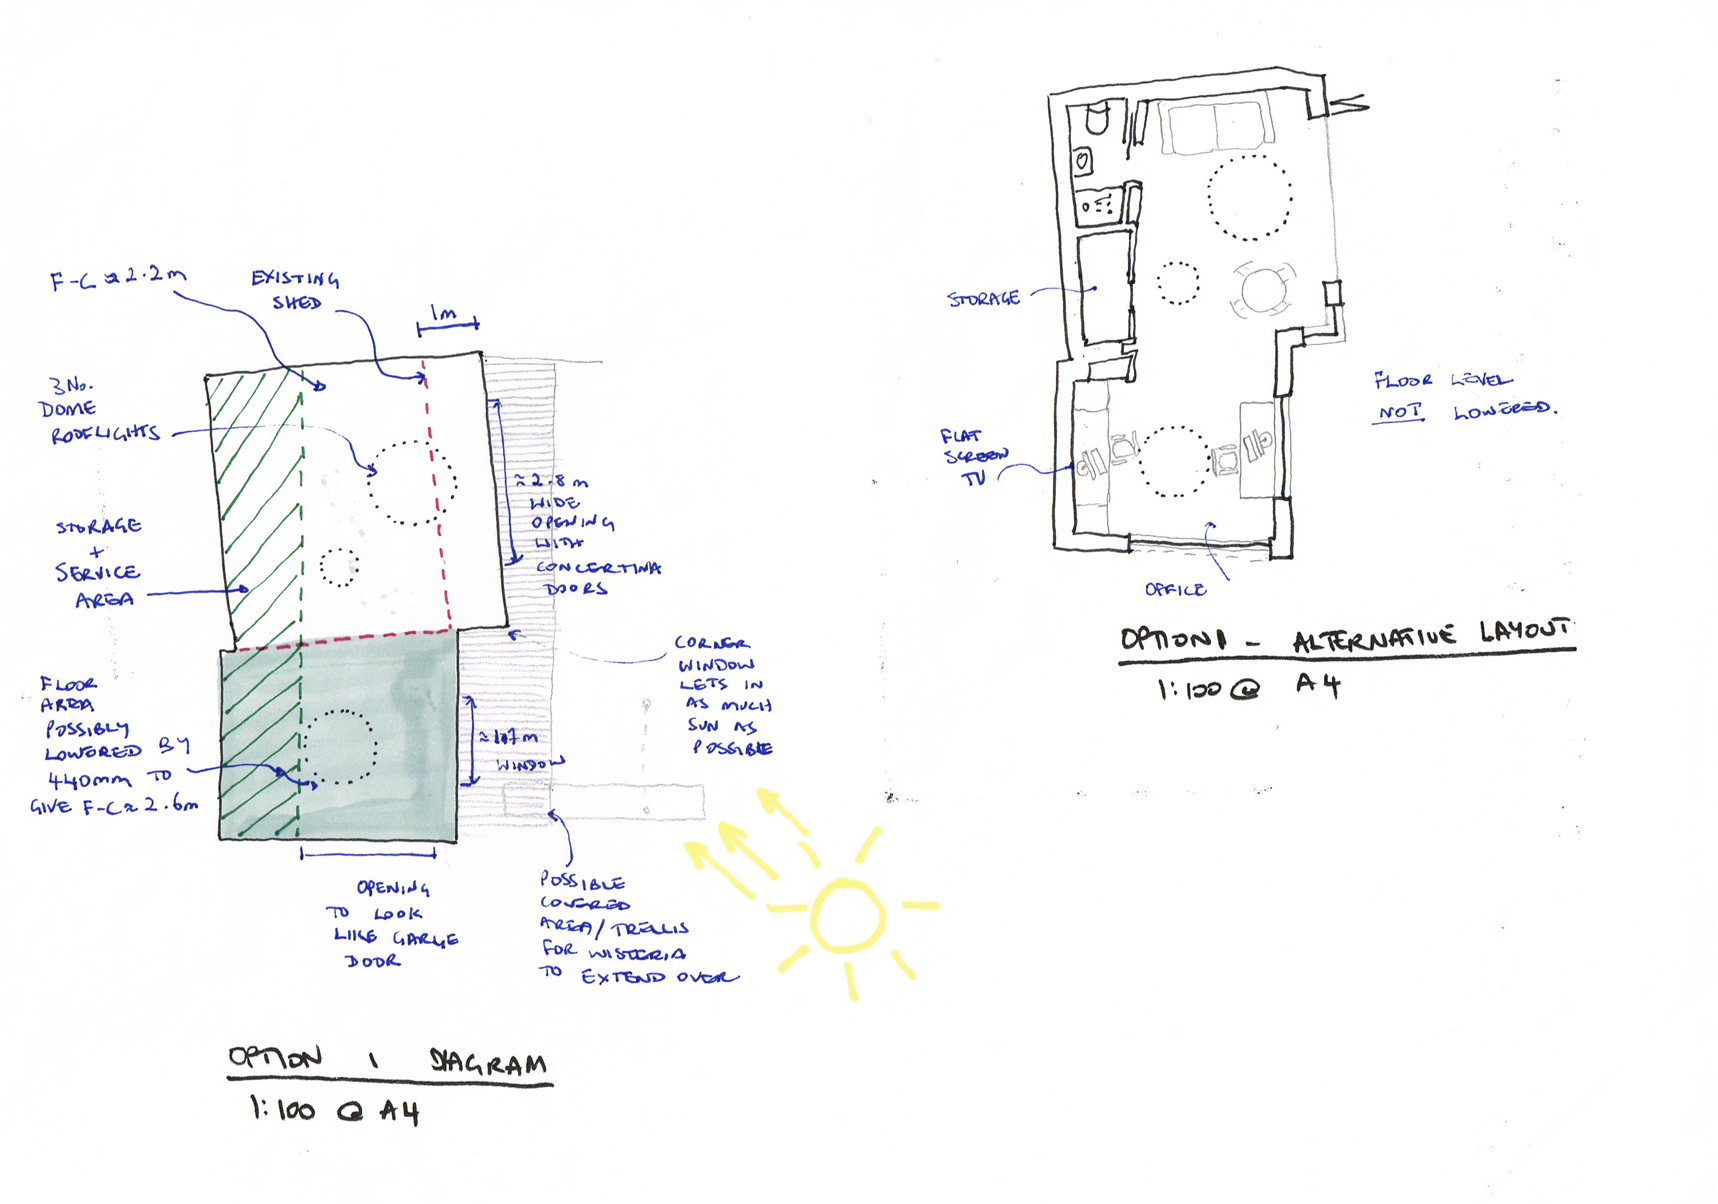 F-C ≈ 2.2m
EXISTING
SHED
1m
3No.
DOME
ROOFLIGHTS
STORAGE
+
SERVICE
AREA
≈ 2.8m
WIDE
OPENING
WITH
CONCERTINA
DOORS
CORNER
WINDOW
LETS IN
AS MUCH
SUN AS
POSSIBLE
FLOOR
AREA
POSSIBLY
LOWERED BY
440mm TO
GIVE F-C ≈ 2.6m
WINDOW
OPENING
TO LOOK
LIKE GARAGE
DOOR
POSSIBLE
COVERED
AREA/TRELLIS
FOR WISTERIA
TO EXTEND OVER
OPTION 1 DIAGRAM
1:100 @ A4
STORAGE
FLAT
SCREEN
TV
FLOOR LEVEL
NOT LOWERED.
OFFICE
OPTION 1 - ALTERNATIVE LAYOUT
1:100 @ A4